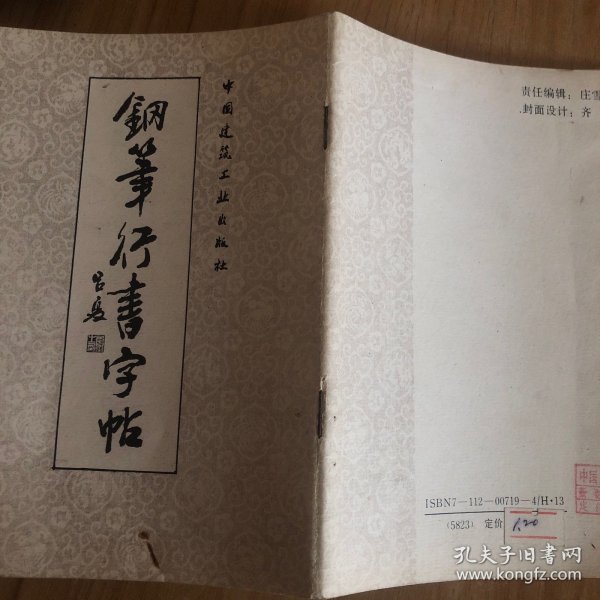 鋼筆行書字帖
中国建筑工业出版社
责任编辑：庄雪
封面设计：齐
ISBN7—112—00719—4/H·13
(5823) 定价
1.20
孔夫子旧书网
www.kongfz.com